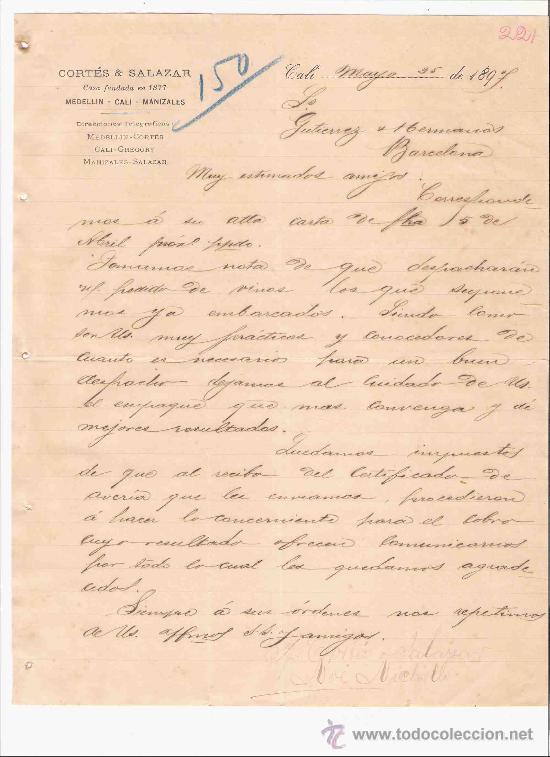 221
CORTÉS & SALAZAR
Casa fundada en 1877
MEDELLIN - CALI - MANIZALES
Direcciones Telegráficas
MEDELLIN-CORTÉS
CALI-GREGORY
MANIZALES-SALAZAR
150
Cali Mayo 25 de 1897
Gutierrez & Hermanos
Barcelona
Muy estimados amigos.
Corresponde
mos á su atta carta de fha 5 de
Abril ppdo.
Tomamos nota de que despacharán
el pedido de vinos los que supone
mos ya embarcados. Siendo como
son Us. muy prácticos y conocedores de
cuanto es necesario para un buen
despacho dejamos al cuidado de Us.
el empaque que mas convenga y dé
mejores resultados.
Quedamos impuestos
de que al recibo del Certificado de
avería que les enviamos, procedieron
á hacer lo concerniente para el cobro
cuyo resultado ofrecen comunicarnos
por todo lo cual les quedamos agrade
cidos.
Siempre á sus órdenes nos repetimos
de Us. affmos S.S. y amigos.
Cortés & Salazar
www.todocoleccion.net